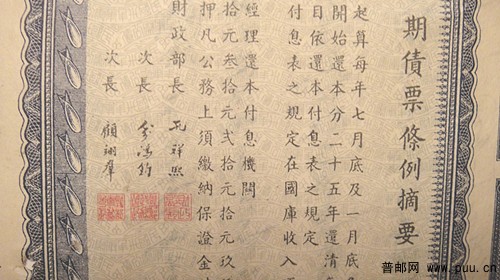 期債票條例摘要
起算每年七月底及一月底
開始還本分二十五年還清
目依還本付息表之規定
付息表之規定在國庫收入
經理還本付息機關
拾元叁拾元弍拾元拾元玖
押凡公務上須繳納保證金
財政部長 孔祥熙
次長
次長 顧翊羣
普邮网 www.puu.cn